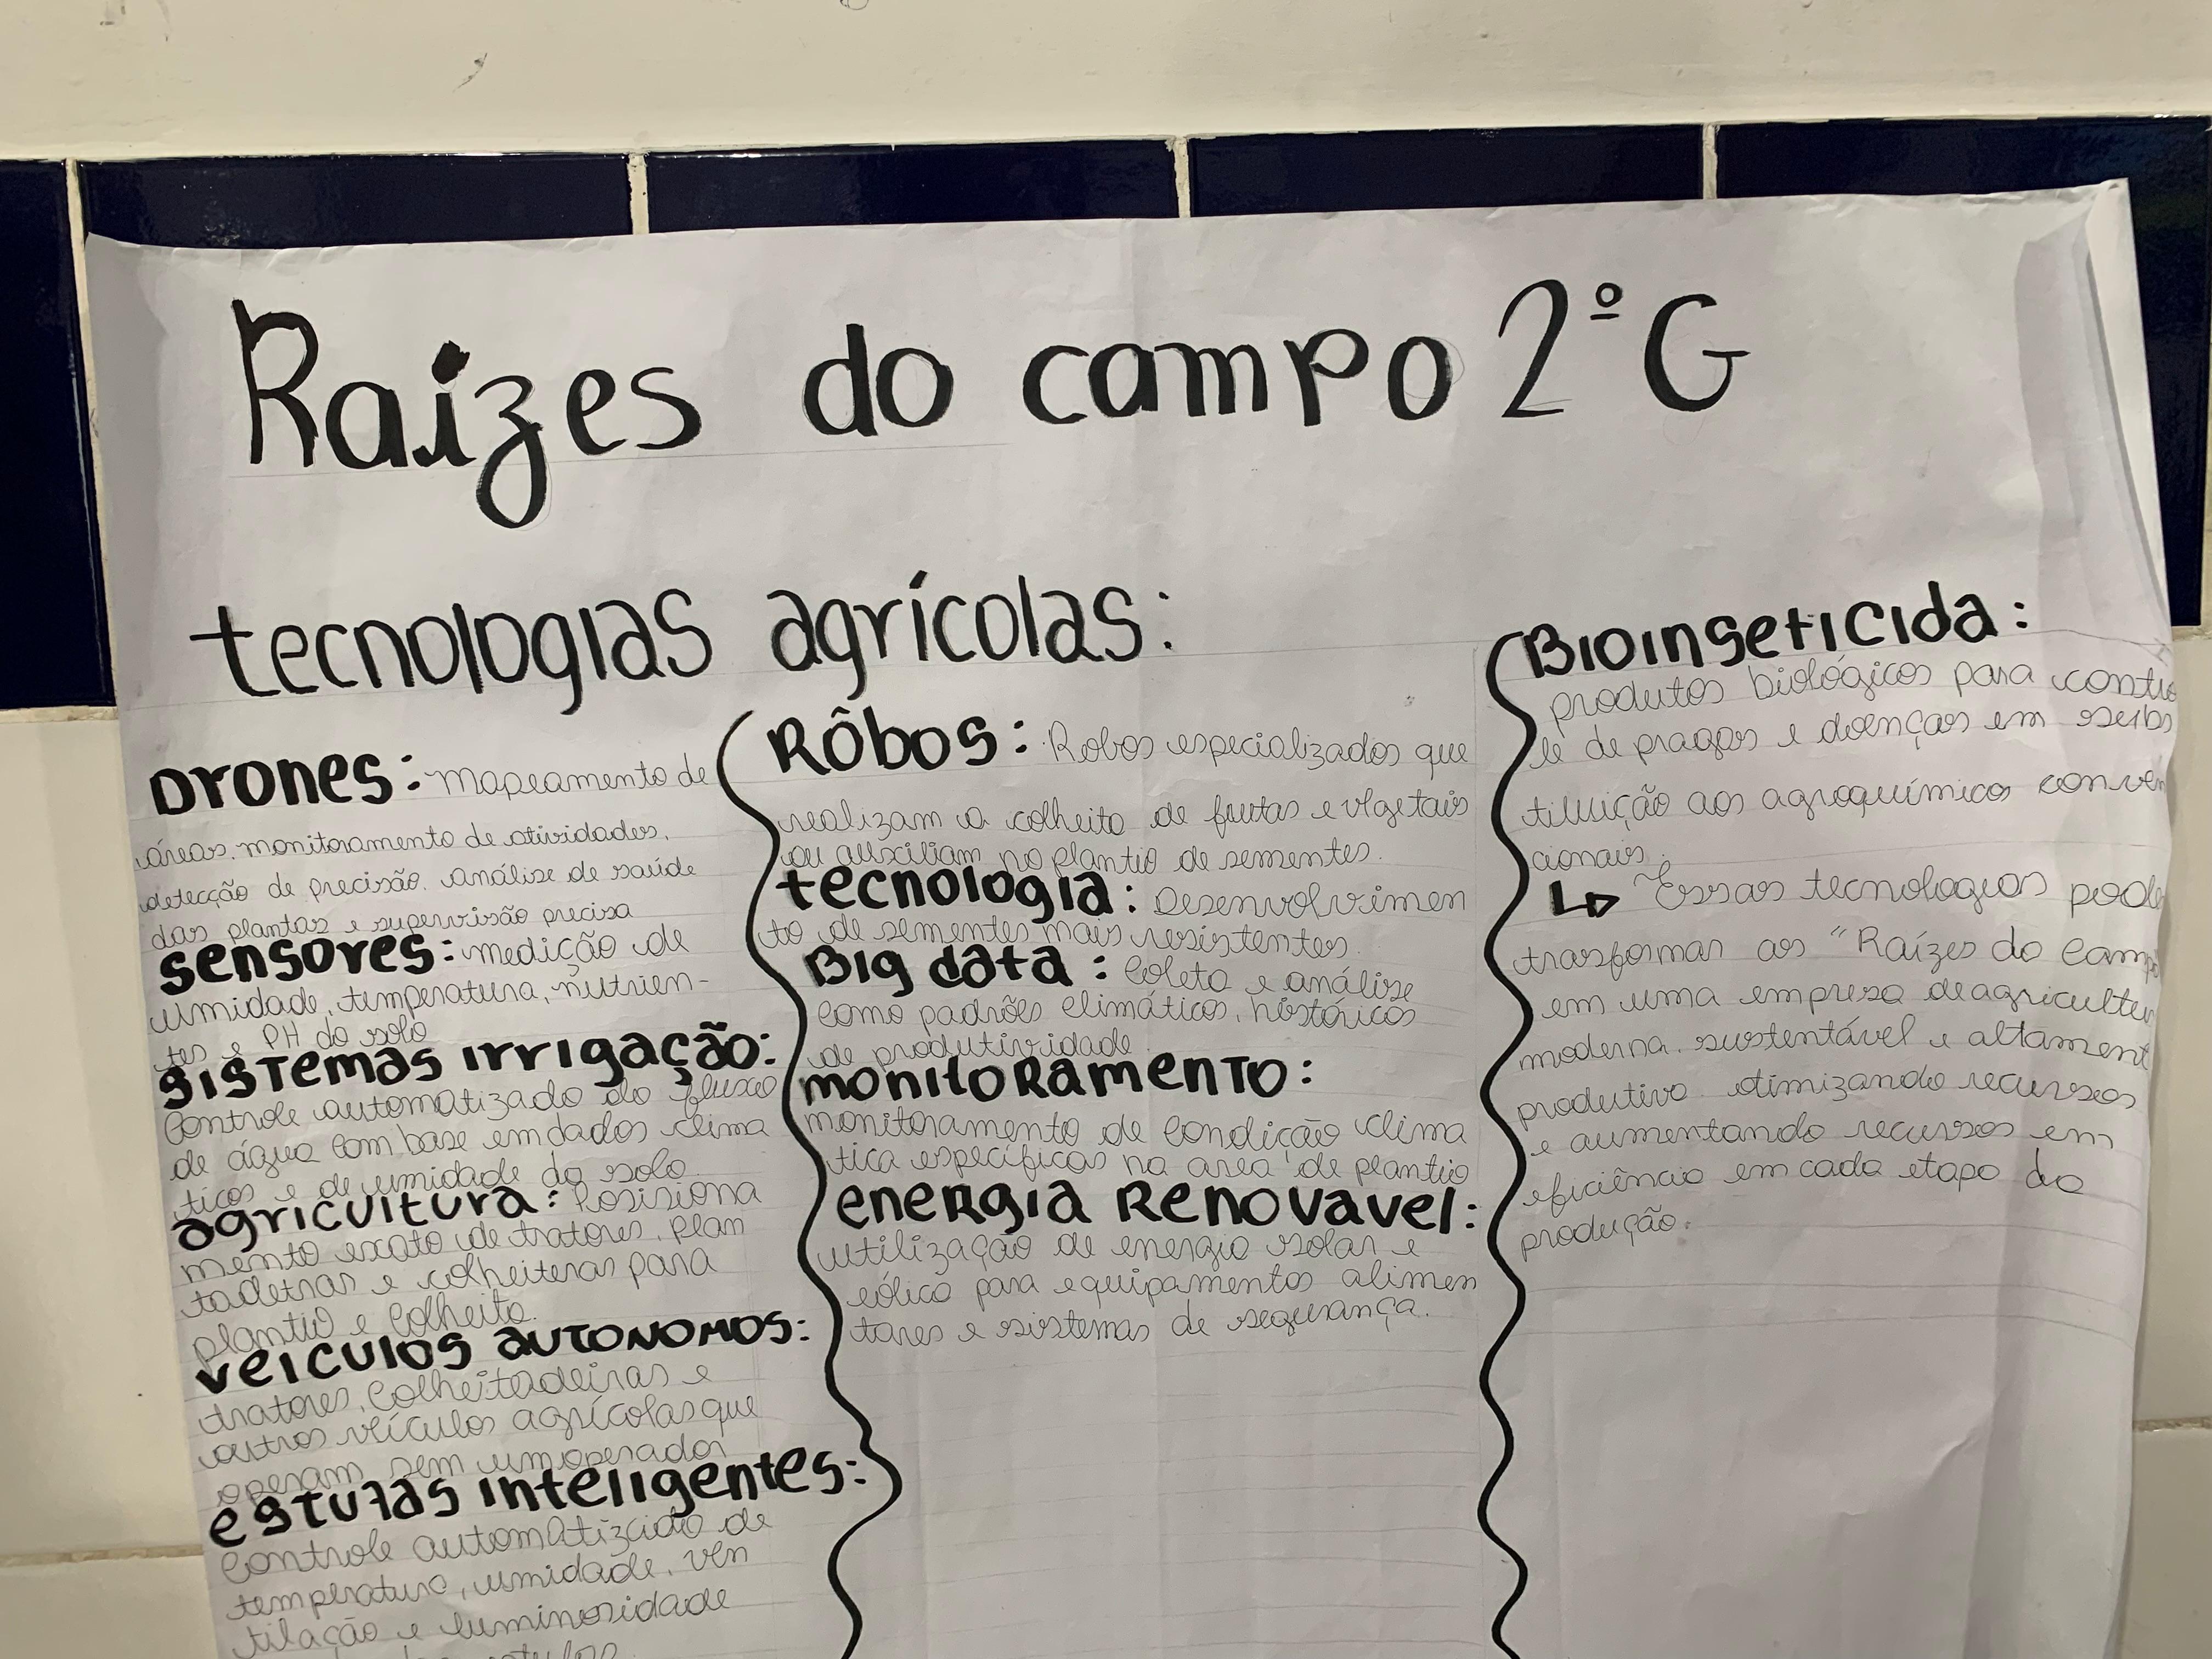 Raízes do campo 2º G
tecnologias agrícolas:
Drones: Mapeamento de
áreas, monitoramento de atividades,
detecção de precisão. análise de saúde
das plantas e supervisão precisa
sensores: medição de
umidade, temperatura, nutrien-
tes e PH do solo
sistemas irrigação:
Controle automatizado do fluxo
de água com base em dados clima
ticos e de umidade do solo.
agricultura: Posisiona
mento exato de tratores, plan
tadetras e colheiteras para
plantio e colheita.
veiculos autonomos:
tratores, Colheitadeiras e
outros veículos agrícolas que
operam sem um operador
estufas inteligentes:
Controle automatizado de
temperatura, umidade, ven
tilação e luminosidade
Rôbos: Robos especializados que
realizam a colheita de frutas e vegetais
ou auxiliam no plantio de sementes.
tecnologia: Desenvolvimen
to de sementes mais resistentes.
Big data: Coleta e análise
como padrões climáticos, históricos
de produtividade.
monitoramento:
monitoramento de condição clima
tica específicas na area de plantio
energia Renovavel:
utilização de energia solar e
eólica para equipamentos alimen
tares e sistemas de segurança.
Bioinseticida:
produtos biológicos para contro
le de pragas e doenças em subs
tituição aos agroquímicos conven
cionais.
Essas tecnologias pode
trasformar as "Raízes do Campo
em uma empresa de agricultur
moderna, sustentável e altament
produtiva otimizando recursos
e aumentando recursos em
eficiência em cada etapa da
produção.